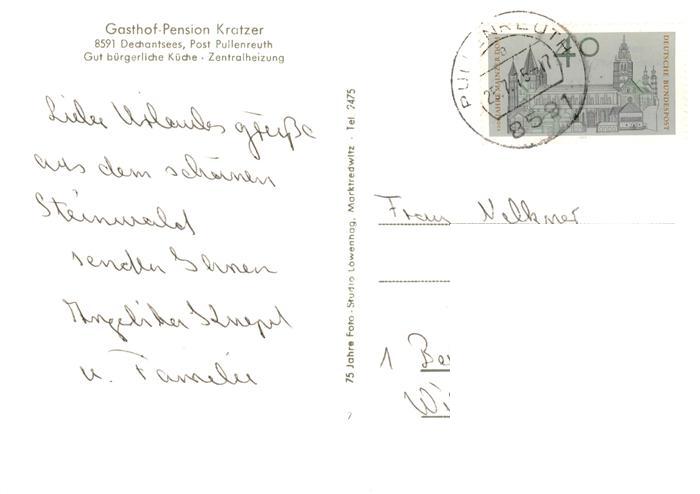 Gasthof-Pension Kratzer
8591 Dechantsees, Post Pullenreuth
Gut bürgerliche Küche · Zentralheizung
Liebe Urlaubsgrüße
aus dem schönen
Steinwald
senden Ihnen
Angelika
u. Familie
75 Jahre Foto-Studio Löwenhag, Marktredwitz · Tel. 2475
PULLENREUTH
8591
40
DEUTSCHE BUNDESPOST
Frau Nelkner
1 Be
Wi